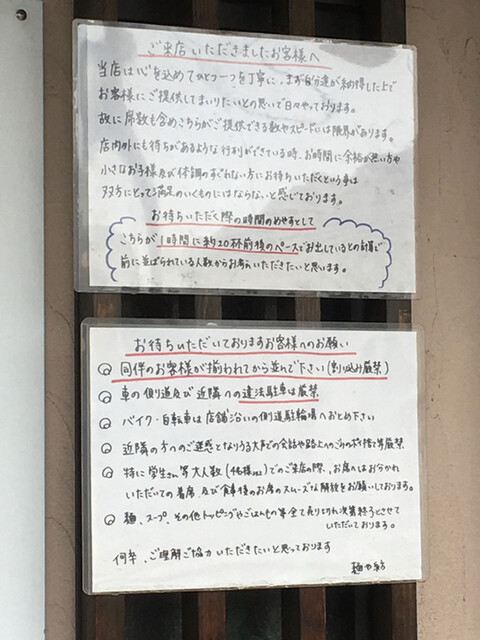 ご来店いただきましたお客様へ
当店は心を込めてひとつ一つを丁寧に、まず自分達が納得した上で
お客様にご提供してまいりたいとの思いで日々やっております。
故に席数も含めこちらがご提供できる数やスピードには限界があります。
店内外にも待ちがあるような行列ができている時、お時間に余裕が無い方や
小さなお子様及び体調のすぐれない方にお待ちいただくという事は
双方にとって満足のいくものにはならないと感じております。
お待ちいただく際の時間のめやすとして
こちらが1時間に約20杯前後のペースでお出ししているとの計算で
前に並ばられている人数からお考えいただきたいと思います。
お待ちいただいておりますお客様へのお願い
◎ 同伴のお客様が揃われてから並んで下さい(割り込み厳禁)
◎ 車の側道及び近隣への違法駐車は厳禁
◎ バイク・自転車は店舗沿いの側道駐輪場へおとめ下さい
◎ 近隣の方へのご迷惑となりうる大声での会話や路上へのごみのポイ捨て等厳禁
◎ 特に学生さん等大人数(4名様以上)でのご来店の際、お席へはお分かれ
いただいての着席、及び食事後のお席のスムーズな解放をお願いしております。
◎ 麺、スープ、その他トッピングやごはんもの等全て売り切れ次第終了とさせて
いただいております。
何卒、ご理解ご協力いただきたいと思っております
麺や紡